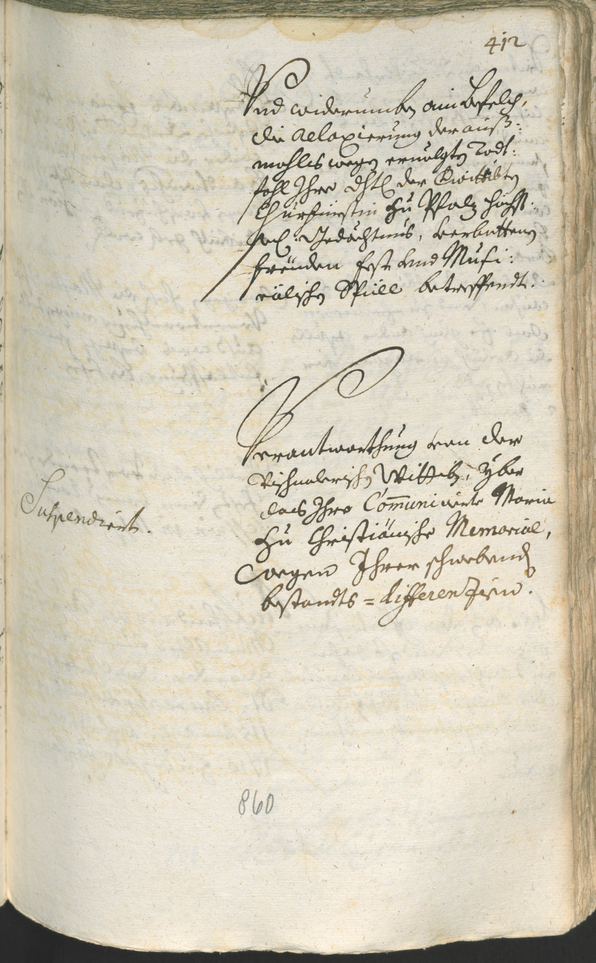 412
Und widerumben ain Befelch,
die Relaxierung der auß:
mahls wegen ervolgten Todt:
fahl Ihro Dhlt. der Verwittibten
Churfürstin zu Pfalz höchst:
Gedächtnus, verbottenen
freuden fest und Musi:
calischen Spüll betreffendt.
Verantworthung von der
Wittib, yber
das Ihro Communicierte Maria
zu Christiänische Memorial,
wegen Ihrer schwebendten
bestandts = differenzien.
Suspendiert.
860